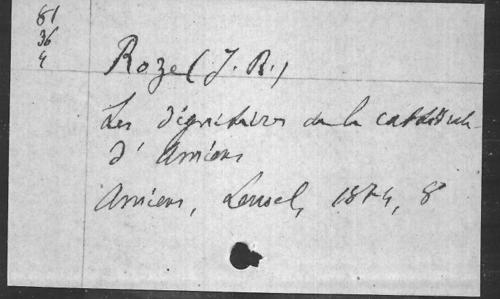 81
36
4
Roze (J. R.)
Les dignitaires de la cathédrale
d'Amiens
Amiens, 1874, 8°